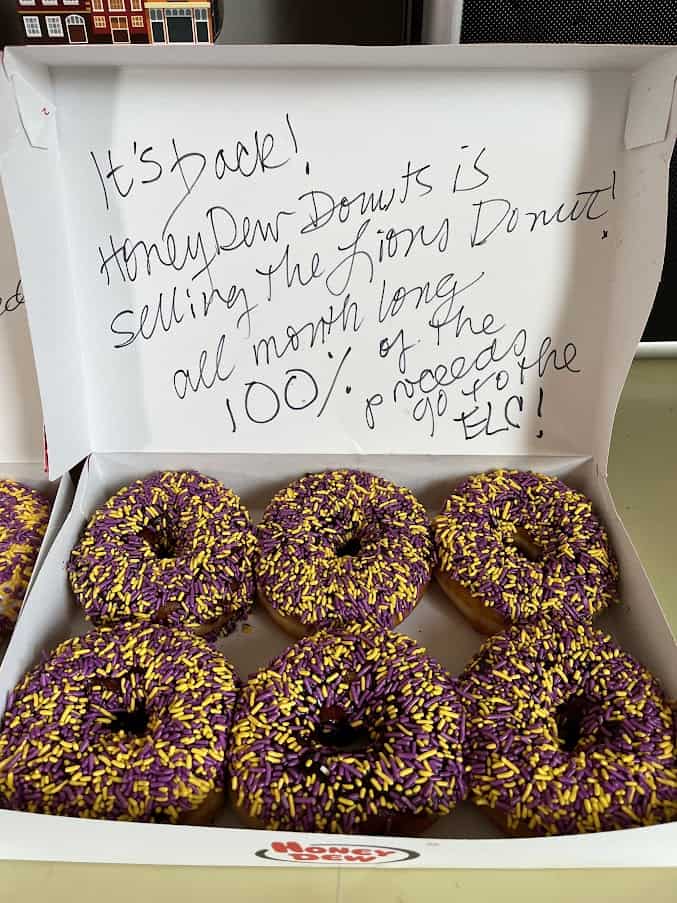 It's back!
HoneyDew Donuts is
selling the Lions Donut!
all month long
100% of the
proceeds
go to the
ELC!
HONEY
DEW